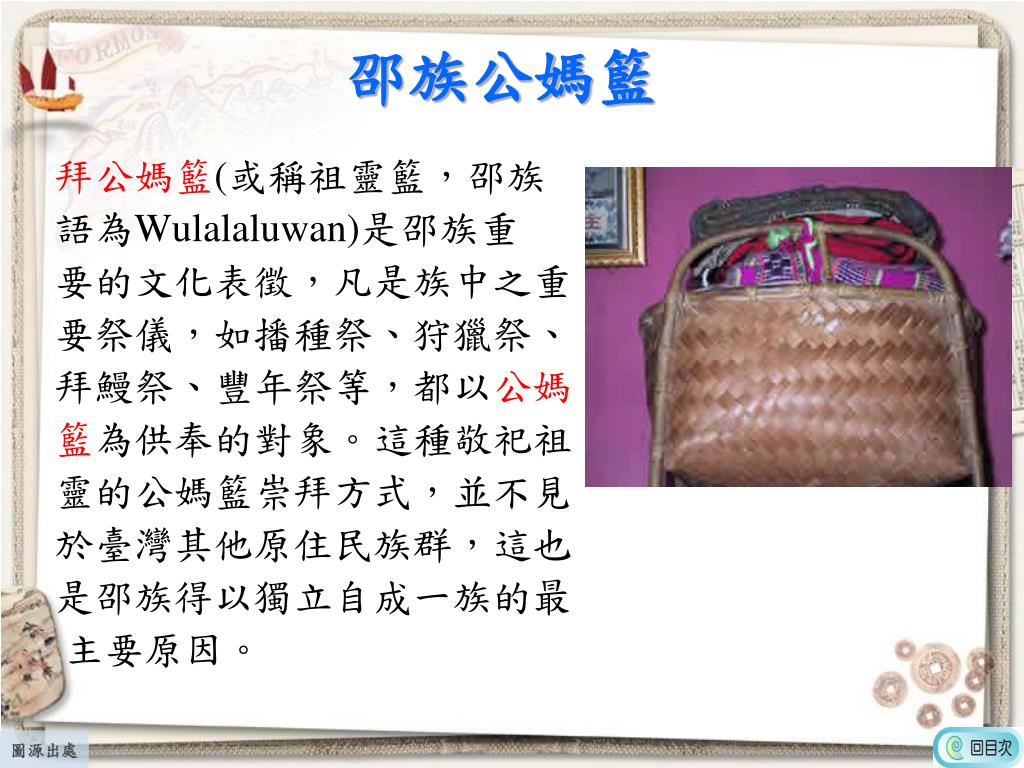 FORMOS
邵族公媽籃
拜公媽籃(或稱祖靈籃，邵族
語為Wulalaluwan)是邵族重
要的文化表徵，凡是族中之重
要祭儀，如播種祭、狩獵祭、
拜鰻祭、豐年祭等，都以公媽
籃為供奉的對象。這種敬祀祖
靈的公媽籃崇拜方式，並不見
於臺灣其他原住民族群，這也
是邵族得以獨立自成一族的最
主要原因。
圖源出處
回目次